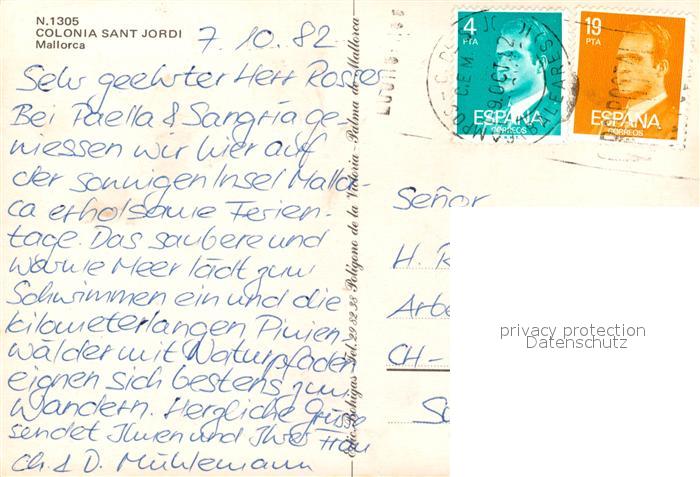 N.1305
COLONIA SANT JORDI
Mallorca
7.10.82
Sehr geehrter Herr Rosser
Bei Paella & Sangría ge-
niessen wir hier auf
der sonnigen Insel Mallor-
ca erholsame Ferien-
tage. Das saubere und
warme Meer lädt zum
Schwimmen ein und die
kilometerlangen Pinien
wälder mit Naturpfaden
eignen sich bestens zum
Wandern. Herzliche Grüsse
sendet Ihnen und Ihrer Frau
Ch. & D. Mühlemann
Edic. Bohigas - Tel. 29 82 38 Polígono de la Victoria - Palma de Mallorca
4
PTA
ESPAÑA
CORREOS
19
PTA
ESPAÑA
CORREOS
Señor
H. R
Arbe
CH-
privacy protection
Datenschutz